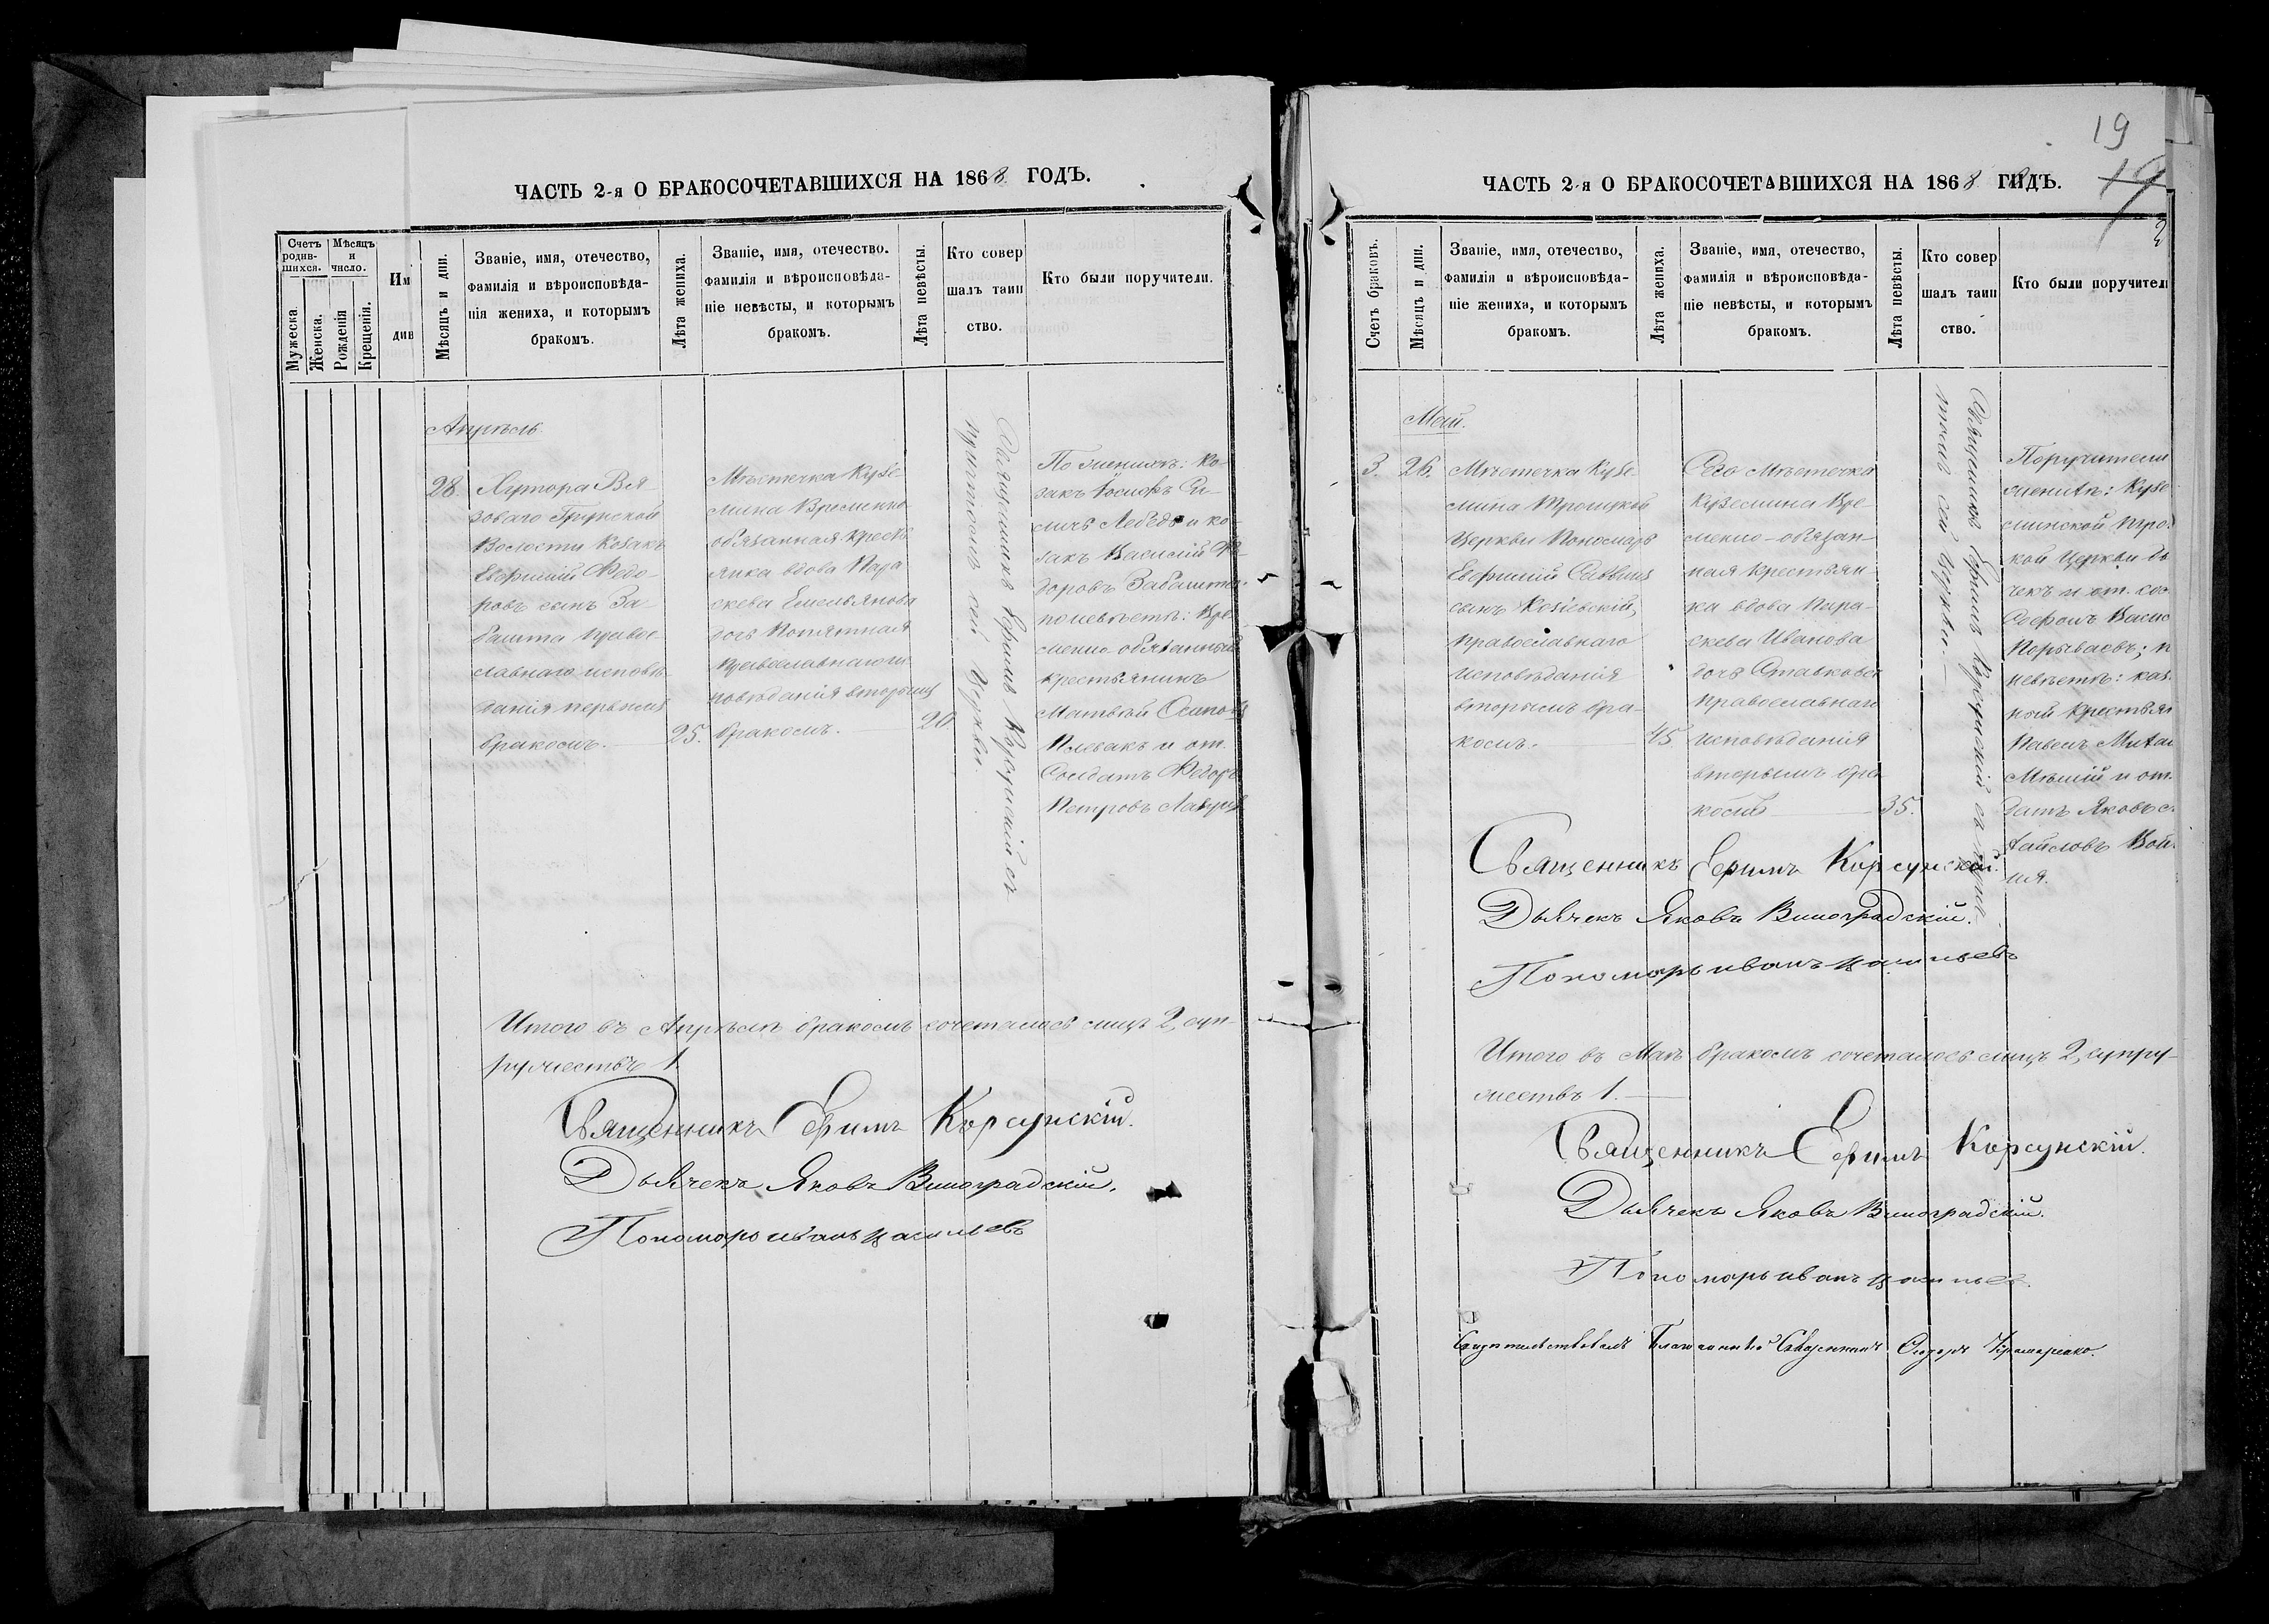 ЧАСТЬ 2-я О БРАКОСОЧЕТАВШИХСЯ НА 1868 ГОДЪ.
Счетъ родив-шихся.
Мѣсяцъ и число.
Мужеска.
Женска.
Рожденія
Крещенія.
Им
див
Мѣсяцъ и дни.
Званіе, имя, отечество,
фамилія и вѣроисповѣда-
нія жениха, и которымъ
бракомъ.
Лѣта жениха.
Званіе, имя, отечество.
фамилія и вѣроисповѣда-
ніе невѣсты, и которымъ
бракомъ.
Лѣта невѣсты.
Кто совер
шалъ таин
ство.
Кто были поручители.
Апрѣль
28.
Хутора Вя-
зоваго Грунской
Волости Козакъ
Евфимій Федо-
ровъ сынъ За-
башта правос-
лавнаго исповѣ-
данія первымъ
бракомъ.
25.
Мѣстечка Кузе-
мина Временно-
обязанная кресть
янка вдова Пара
скева Емельянова
дочь Попятная
православнаго ис
повѣданія вторымъ
бракомъ.
20.
Священникъ Ефимъ Корсунскій съ
причтомъ сей Церкви.
По женихѣ: Ко-
закъ Іосифъ
Лебедь и ко-
закъ Василій Фе-
доровъ Забашта
по невѣстѣ: Вре
менно-обязанный
крестьянинъ
Матвѣй Осиповъ
Плевакъ и от.
Солдатъ Федоръ
Петровъ
Итого въ Апрѣлѣ бракомъ сочеталось лицъ 2, суп-
ружествъ 1.
Священникъ Ефимъ Корсунскій.
Дьячекъ Яковъ Виноградскій.
Пономарь иванъ
ЧАСТЬ 2-я О БРАКОСОЧЕТАВШИХСЯ НА 1868 ГОДЪ.
19
19
Счетъ браковъ.
Мѣсяцъ и дни.
Званіе, имя, отечество,
фамилія и вѣроисповѣда-
ніе жениха, и которымъ
бракомъ.
Лѣта жениха.
Званіе, имя, отечество,
фамилія и вѣроисповѣда-
ніе невѣсты, и которымъ
бракомъ.
Лѣта невѣсты.
Кто совер
шалъ таин
ство.
Кто были поручители
Май.
3.
26.
Мѣстечка Кузе
мина Троицкой
Церкви Пономарь
Евфимій Саввинъ
сынъ Козіевскій,
православнаго
исповѣданія
вторымъ бра-
комъ.
45.
Сего Мѣстечка
Куземина Вре-
менно-обязан-
ная крестьян-
ка вдова Пара-
скева Иванова
дочь
православнаго
исповѣданія
вторымъ бра
комъ
35.
Священникъ Ефимъ Корсунскій съ прич
томъ сей Церкви.
Поручители
женихѣ: Кузе
минской Трои
кой Церкви дь
чекъ и от. сол
Софронъ Васил
Порываевъ; п
невѣстѣ: каз
ный крестьян
Павелъ Михаи
и от.
датъ Яковъ
хайловъ
Священникъ Ефимъ Корсунскій.
Дьячекъ Яковъ Виноградскій.
Пономарь иванъ
Итого въ Маѣ бракомъ сочеталось лицъ 2, супру-
жествъ 1.
Священникъ Ефимъ Корсунскій.
Дьячекъ Яковъ Виноградскій.
Пономарь иванъ
Свидѣтельствовалъ Благочинный Священникъ